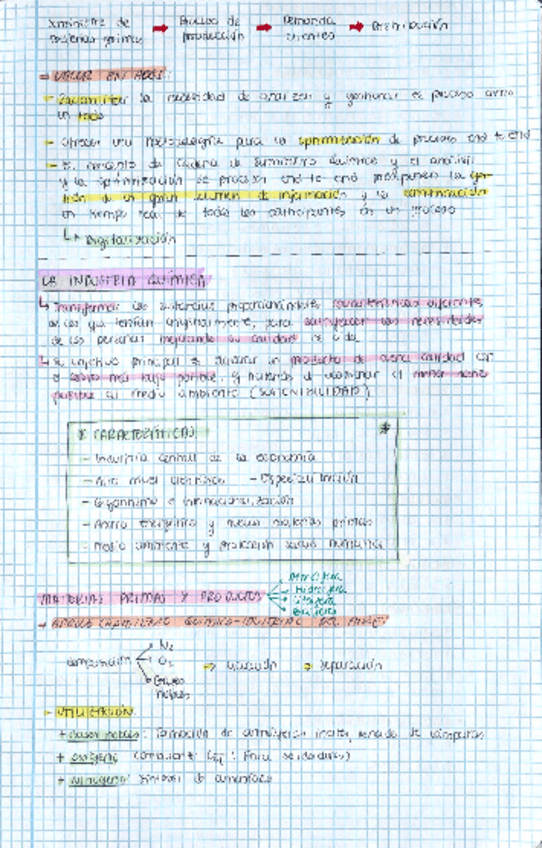 Suministro de materias primas → Proceso de producción → Demanda clientes → Distribución
→ VALOR EN ARSI:
- la necesidad de analizar y gestionar el proceso como un todo
- Ofrecer una metodología para la optimización de procesos end to end
- El concepto de Cadena de Suministro Química y el análisis
y la optimización de procesos end-to-end presuponen la ges-
tión de un gran volumen de información y la comunicación
en tiempo real de todos los participantes en un proceso
↳ Digitalización
LA INDUSTRIA QUÍMICA
↳ Transformar las sustancias proporcionándoles características diferentes
de las que tenían originalmente, para satisfacer las necesidades
de las personas mejorando su calidad de vida
↳ Su objetivo principal es elaborar un producto de buena calidad con
el costo más bajo posible, y tratando de ocasionar el menor daño
posible al medio ambiente (SOSTENIBILIDAD)
* CARACTERÍSTICAS: *
- Industria central de la economía
- Alto nivel científico - Especialización
- Gigantismo e internacionalización
- Ahorro energético y nuevas materias primas
- Medio ambiente y protección
MATERIAS PRIMAS Y PRODUCTOS
Atmósfera
Hidrosfera
Litosfera
Biosfera
→ APROVECHAMIENTO QUÍMICO-INDUSTRIAL DEL AIRE:
composición N₂ O₂ Gases nobles → licuación → separación
- UTILIZACIÓN:
+ Gases nobles: Formación de atmósferas inertes, llenado de lámparas
+ Oxígeno: Comburente (para soldaduras)
+ Nitrógeno: síntesis de amoníaco